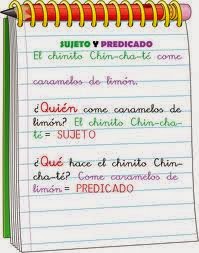 SUJETO Y PREDICADO
El chinito Chin-cha-té come
caramelos de limón.
¿Quién come caramelos de
limón? El chinito Chin-cha-
té = SUJETO
¿Qué hace el chinito Chin-
cha-té? Come caramelos de
limón = PREDICADO